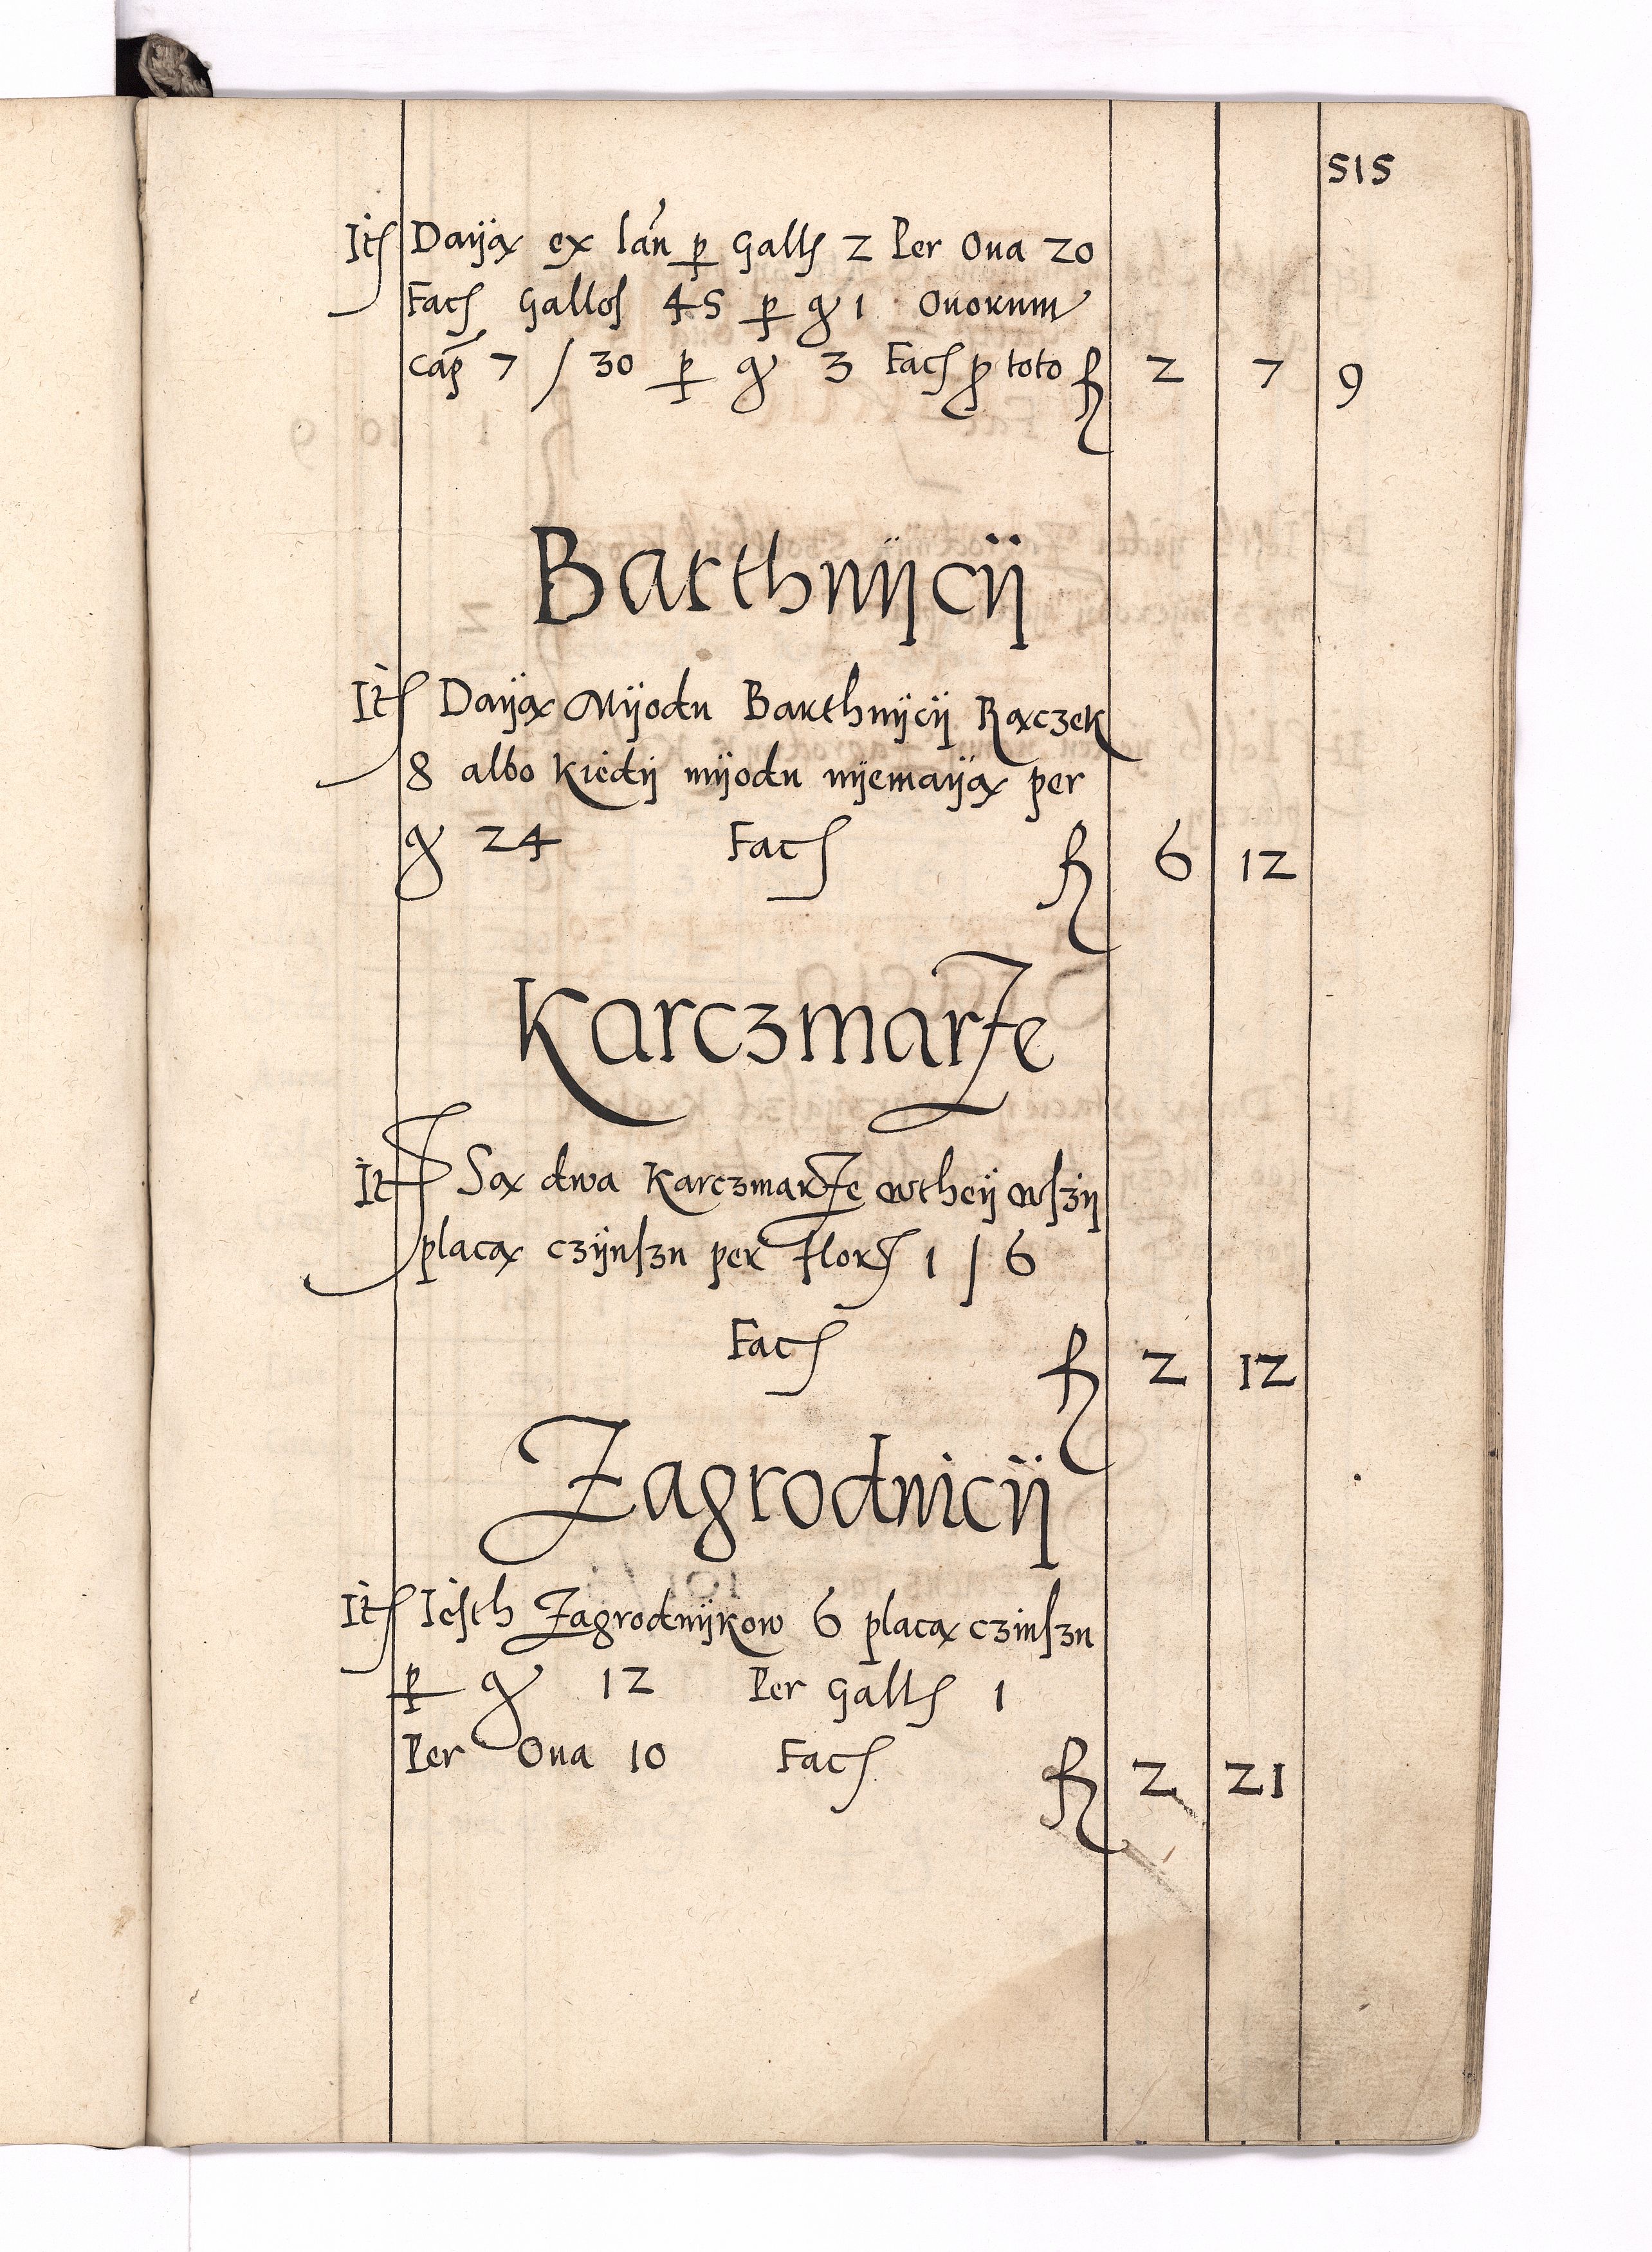 515
Itē Daÿą ex lán ꝑ Galls 2 Per Oua 20
Facꝭ Gallos 45 ꝑ gͬ 1 Ouorum
cap̄ 7 / 30 ꝑ gͬ 3 Facꝭ ꝓ toto fl 2 7 9
Barthnÿcÿ
Itē Daÿą Mÿodu Barthnÿcÿ Rączek
8 albo kiedÿ mÿodu nÿemaÿą per
gͬ 24 Facꝭ fl 6 12
Karczmarze
Itē Są dwa Karczmarze wtheÿ wſzÿ
placą czÿnſzu per Floꝝ 1 / 6
Facꝭ fl 2 12
Zagrodnicÿ
Itē Ieſth Zagrodnÿkow 6 placą czinſzu
ꝑ gͬ 12 Per Galls 1
Per Oua 10 Facꝭ fl 2 21